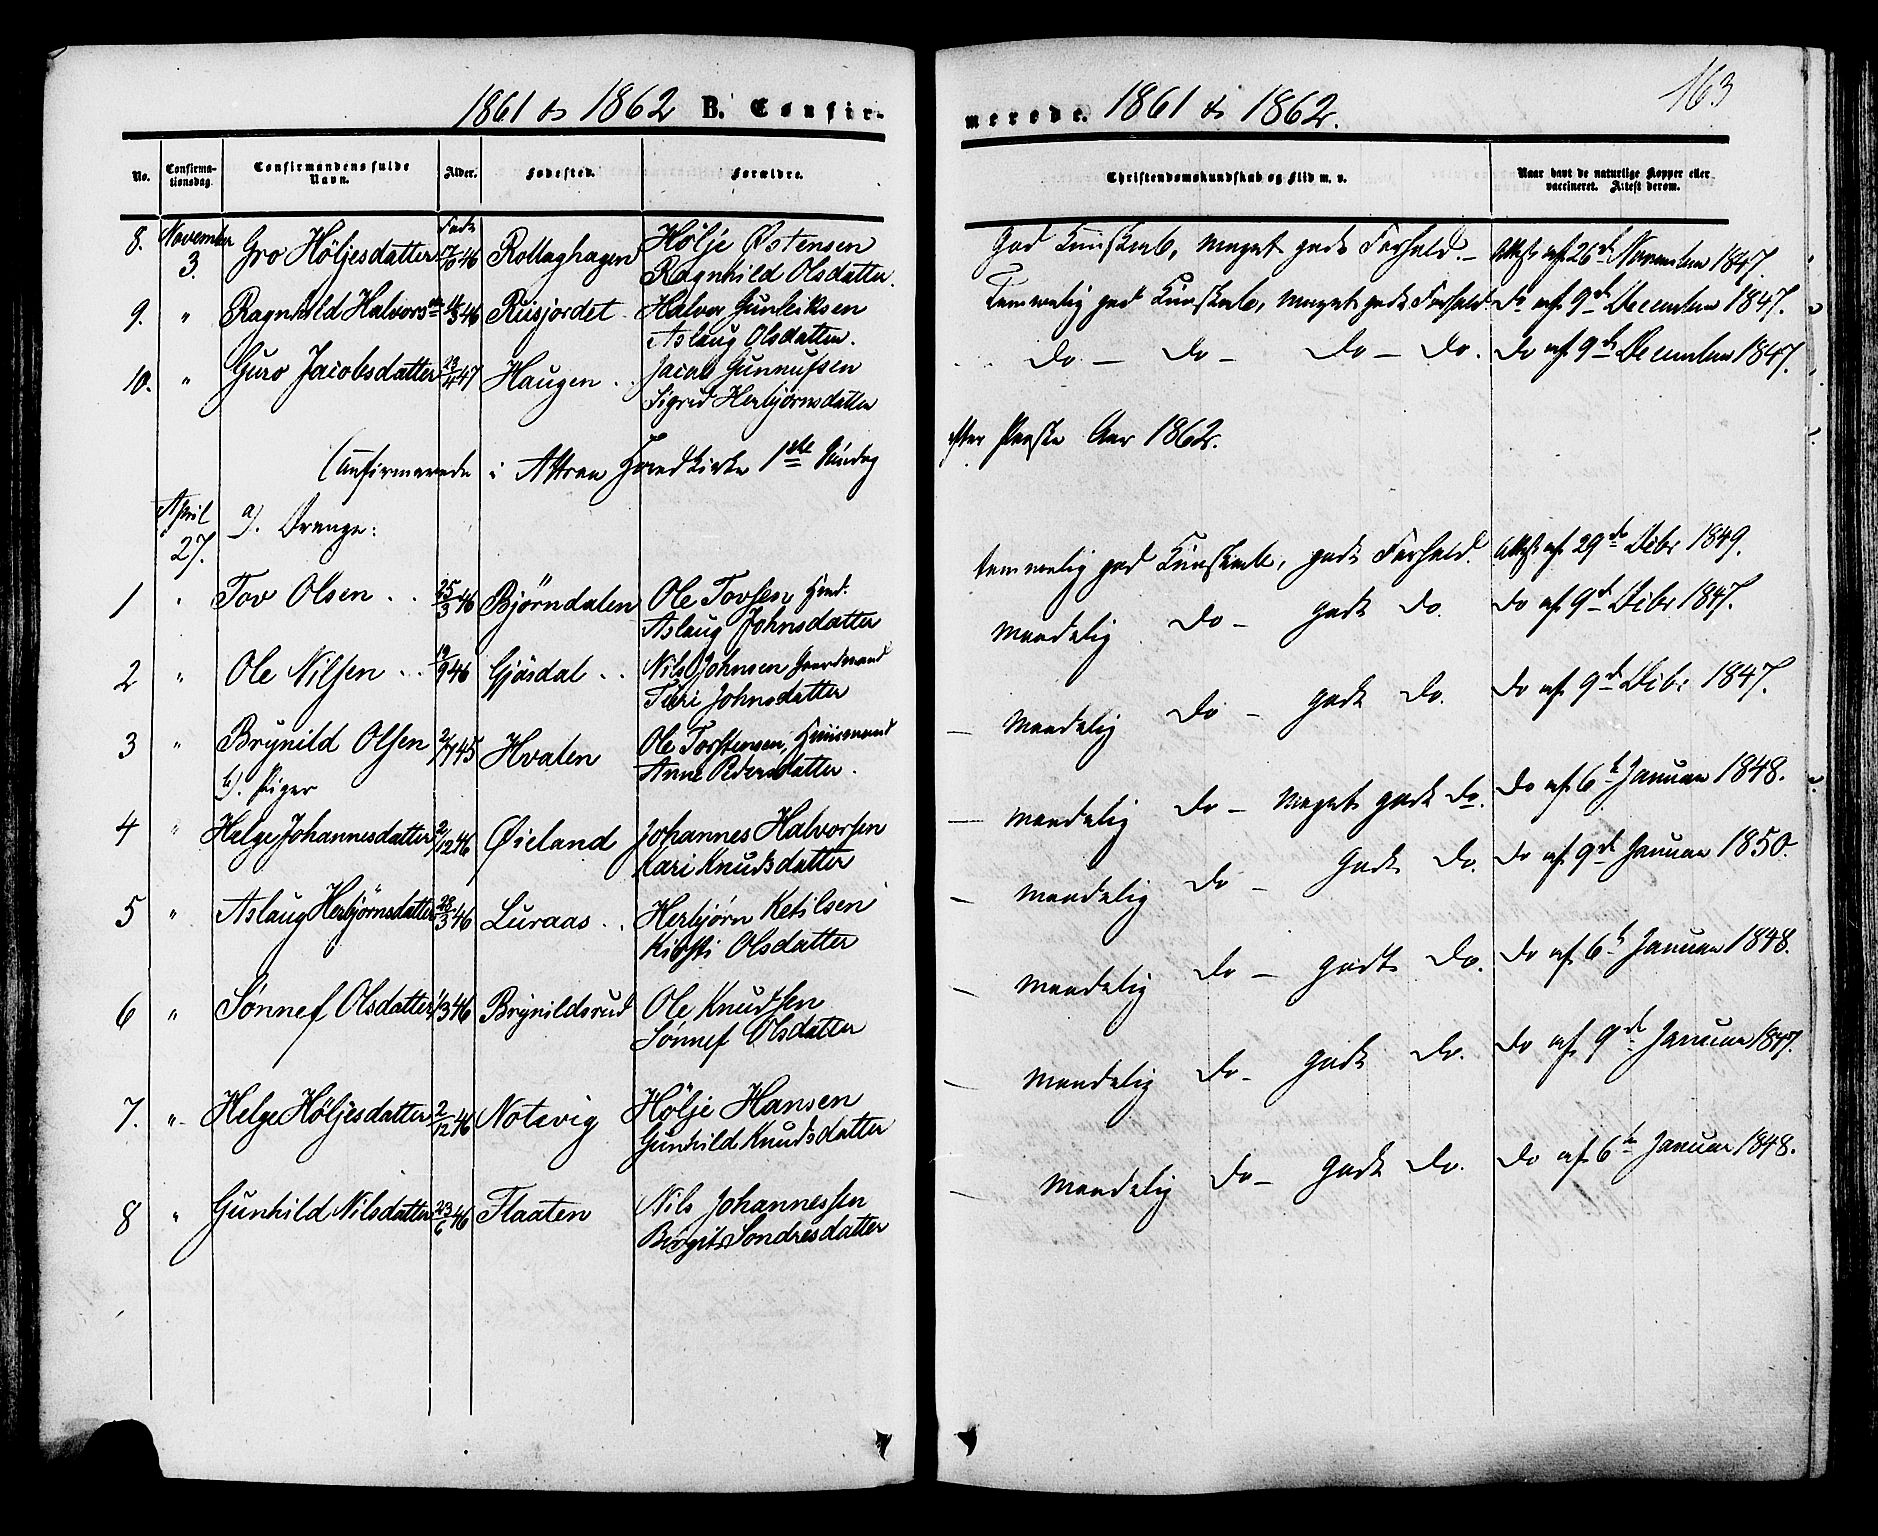 1861 & 1862 B. Confir-
merede. 1861 & 1862.
163
No.
Confirma-
tionsdag.
Confirmandens fulde
Navn.
Alder.
Fødested.
Forældre.
Christendomskundskab og Flid m. v.
Naar havt de naturlige Kopper eller
vaccineret. Attest derom.
8. November 3. Gro Höljesdatter 46 Rollaghagen Hölje Østensen
Ragnhild Olsdatter.
God Kundskab, meget godt Forhold. – Attest af 26de November 1847.
9. " Ragnhild Halvorsdtr 46 Rusjordet Halvor Gunleiksen
Aslaug Olsdatter.
Temmelig god Kundskab, meget godt Forhold. Do af 9de December 1847.
10. " Guro Jacobsdatter 23/4 47 Haugen . . Jacob Gunnufsen
Sigrid Herbjørnsdatter
Do – Do – Do – Do. Do af 9de December 1847.
Confirmerede i Attraa Hovedkirke 1ste Søndag
efter Paaske Aar 1862.
April
27.
a). Drenge:
1 " Tov Olsen . . 25/3 46 Bjørndalen Ole Tovsen
Aslaug Johnsdatter
temmelig god Kundskab, godt Forhold. Attest af 29de Decbr 1849.
2 " Ole Nilsen . . 19/9 46 Gjøsdal . . Nils Johnsen Gaardmand
Turi Johnsdatter
maadelig Do – godt Do. Do af 9de Decbr 1847.
3 " Brynild Olsen 45 Hvalen Ole Torstensen, Huusmand
Anne Pedersdatter.
maadelig Do – godt Do. Do af 9de Decbr 1847.
b). Piger
4 " Helge Johannesdatter 2/12 46 Øieland Johannes Halvorsen
Kari Knudsdatter
maadelig Do – meget godt Do. Do af 6te Januar 1848.
5 " Aslaug Herbjørnsdatter 28/3 46 Luraas . . Herbjørn Ketilsen
Kirsti Olsdatter
maadelig Do – Godt Do. Do af 9de Januar 1850.
6 " Sønnef Olsdatter 46 Brynildsrud Ole Knudsen
Sønnef Olsdatter
maadelig Do – godt Do. Do af 6te Januar 1848.
7. " Helge Höljesdatter 2/12 46 Notevig Hölje Hansen
Gunhild Knudsdatter
maadelig Do – godt Do. Do af 9de Januar 1847.
8 " Gunhild Nilsdatter 23/6 46 Flaaten Nils Johannessen
Birgit Sondresdatter
maadelig Do – godt Do. Do af 6te Januar 1848.